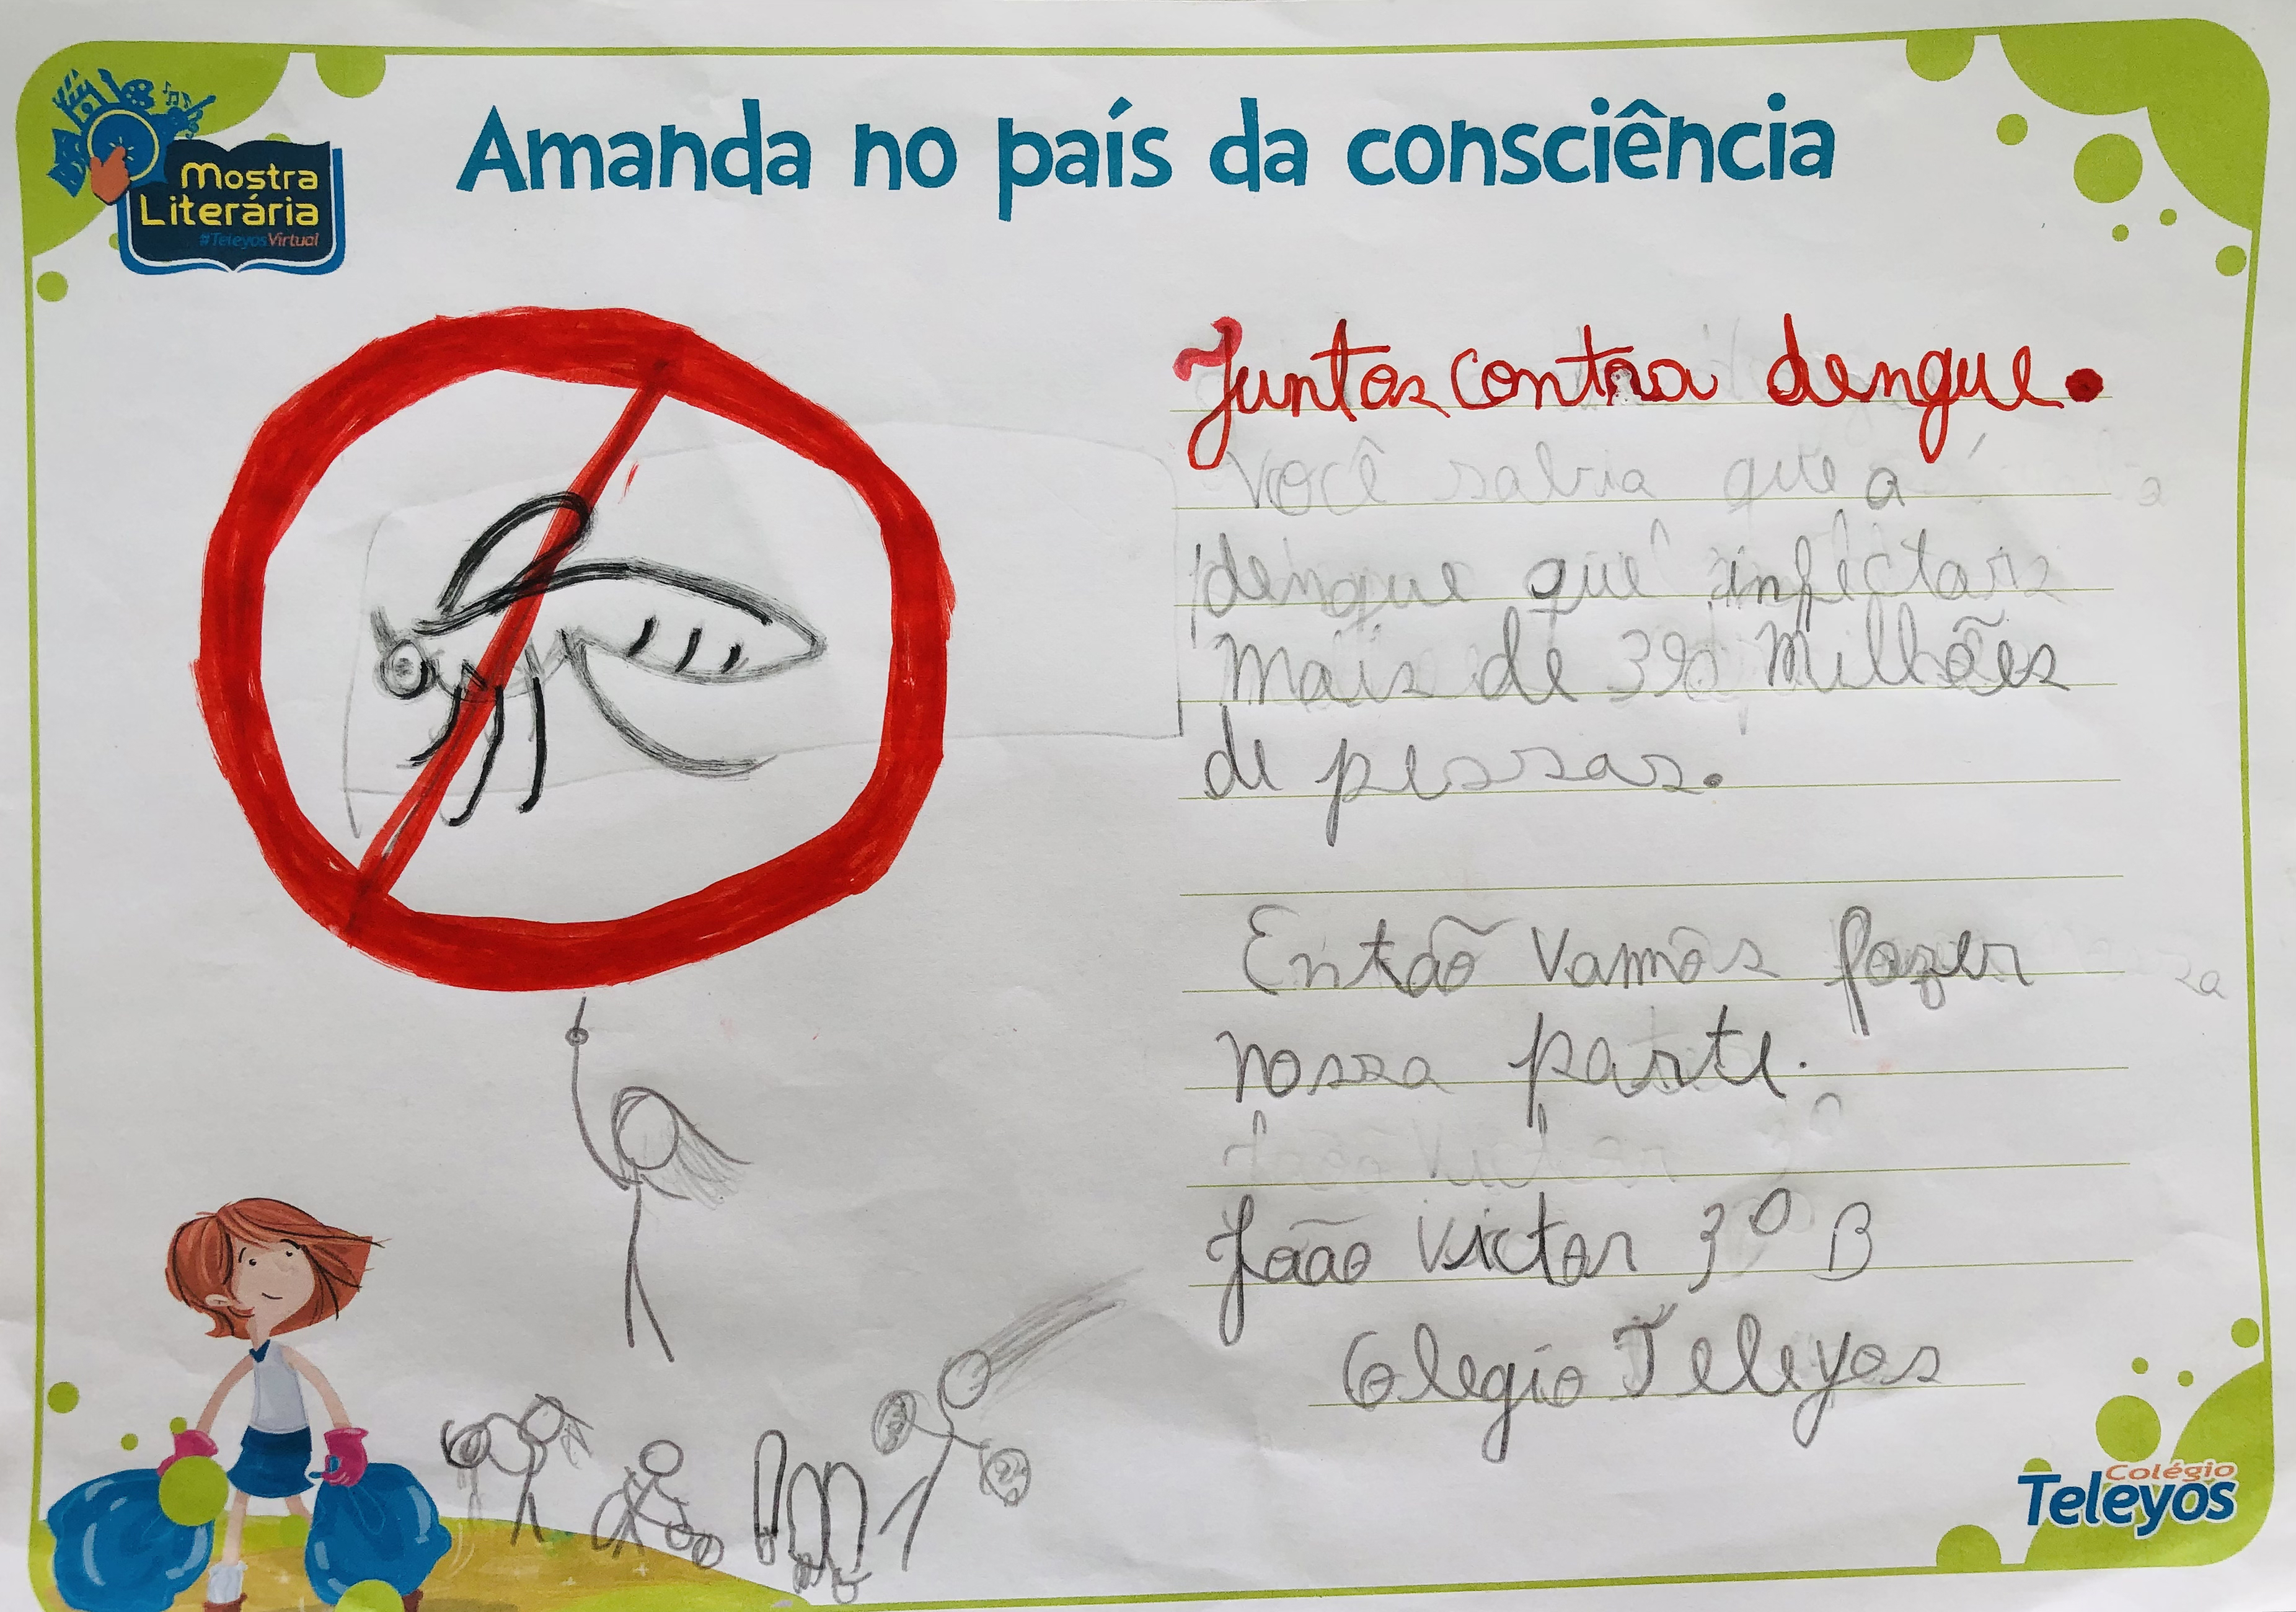 Amanda no país da consciência
Mostra
Literária
#TeleyosVirtual
Juntos contra dengue.
Você sabia que a
dengue que infectars
mais de 390 milhões
de pessoas.
Então vamos fazer
nossa parte.
João Victor 3º B
Colegio Teleyos
Colégio
Teleyos